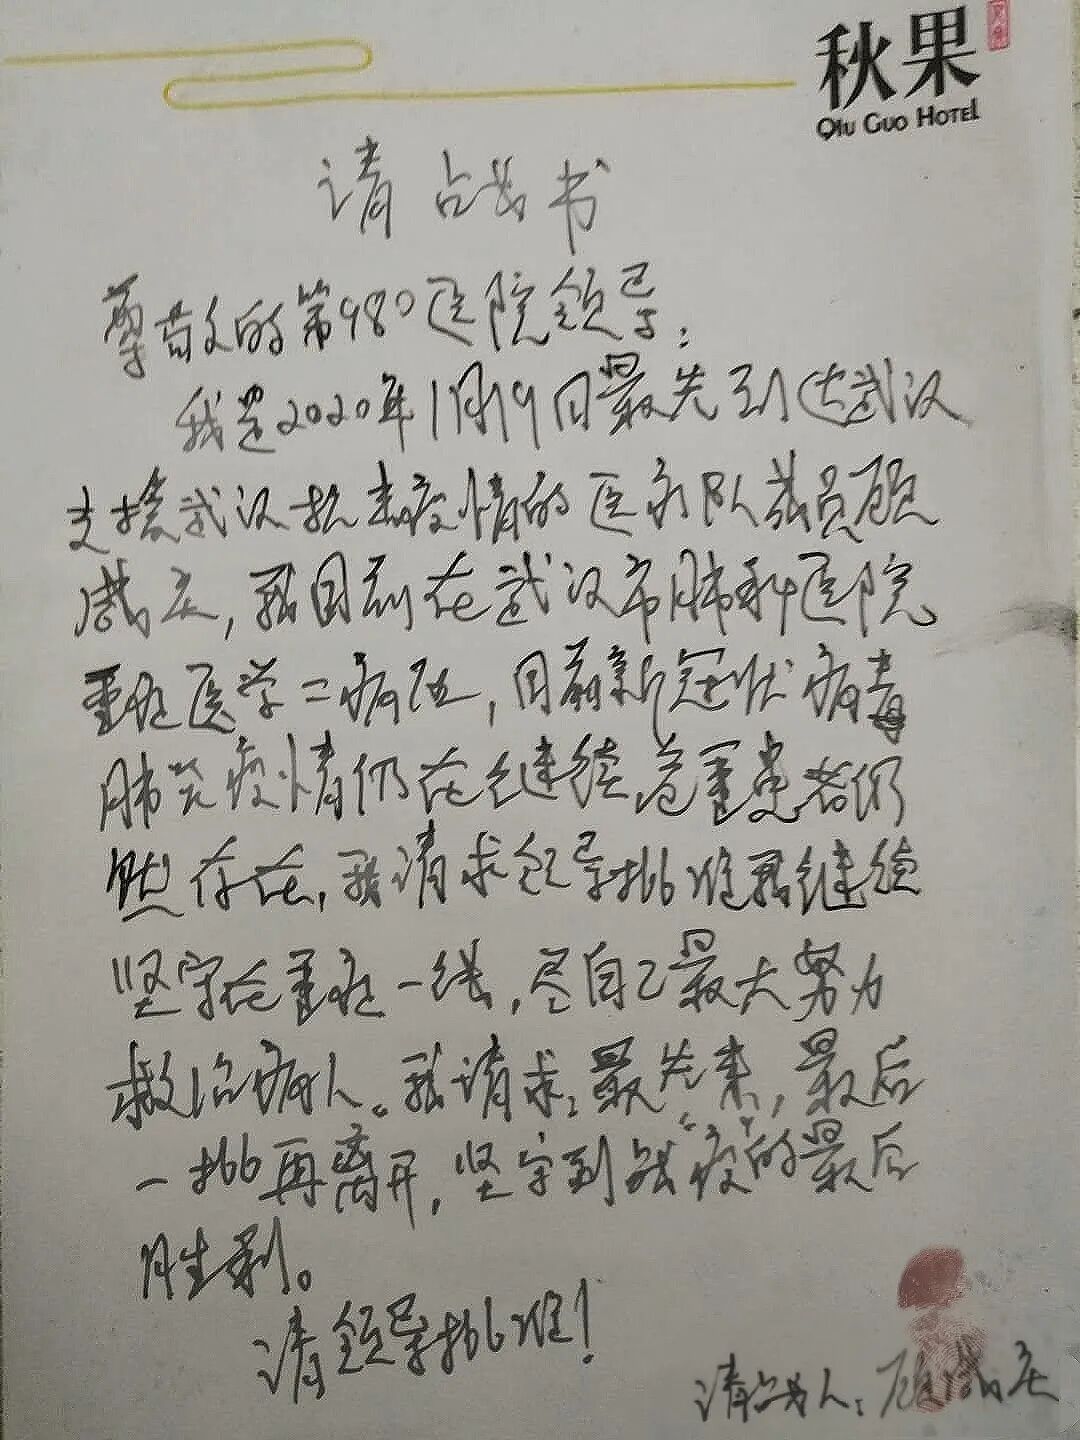 秋果
QIU GUO HOTEL
请战书
尊敬的第980医院领导:
我是2020年1月19日最先到达武汉
支援武汉抗击疫情的医疗队成员顾
庆,我目前在武汉市肺科医院
重症医学二病区,目前新冠状病毒
肺炎疫情仍在继续,危重患者仍
然存在,我请求领导批准我继续
坚守在重症一线,尽自己最大努力
救治病人。我请求:最先来,最后
一批再离开,坚守到战“疫”的最后
胜利。
请领导批准!
请战人:顾 庆